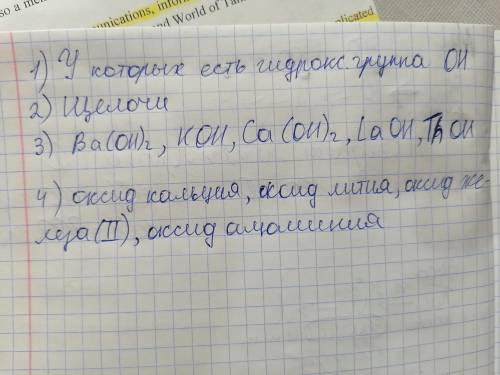 so a me
munications, inform
and World of Tan
mplicated
1) У которых есть гидрокс. группа OH
2) Щелочи
3) Ba(OH)₂, KOH, Ca(OH)₂, LaOH, ThOH
4) оксид кальция, оксид лития, оксид же-
леза (II), оксид алюминия